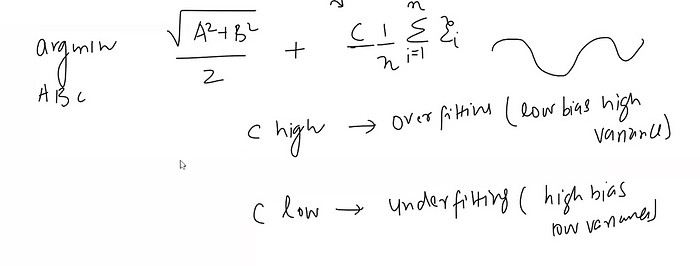 argmin √A²+B² / 2 + C 1/n Σ i=1 n ξi
A B C
C high → overfitting (low bias high
variance)
C low → underfitting (high bias
low variance)